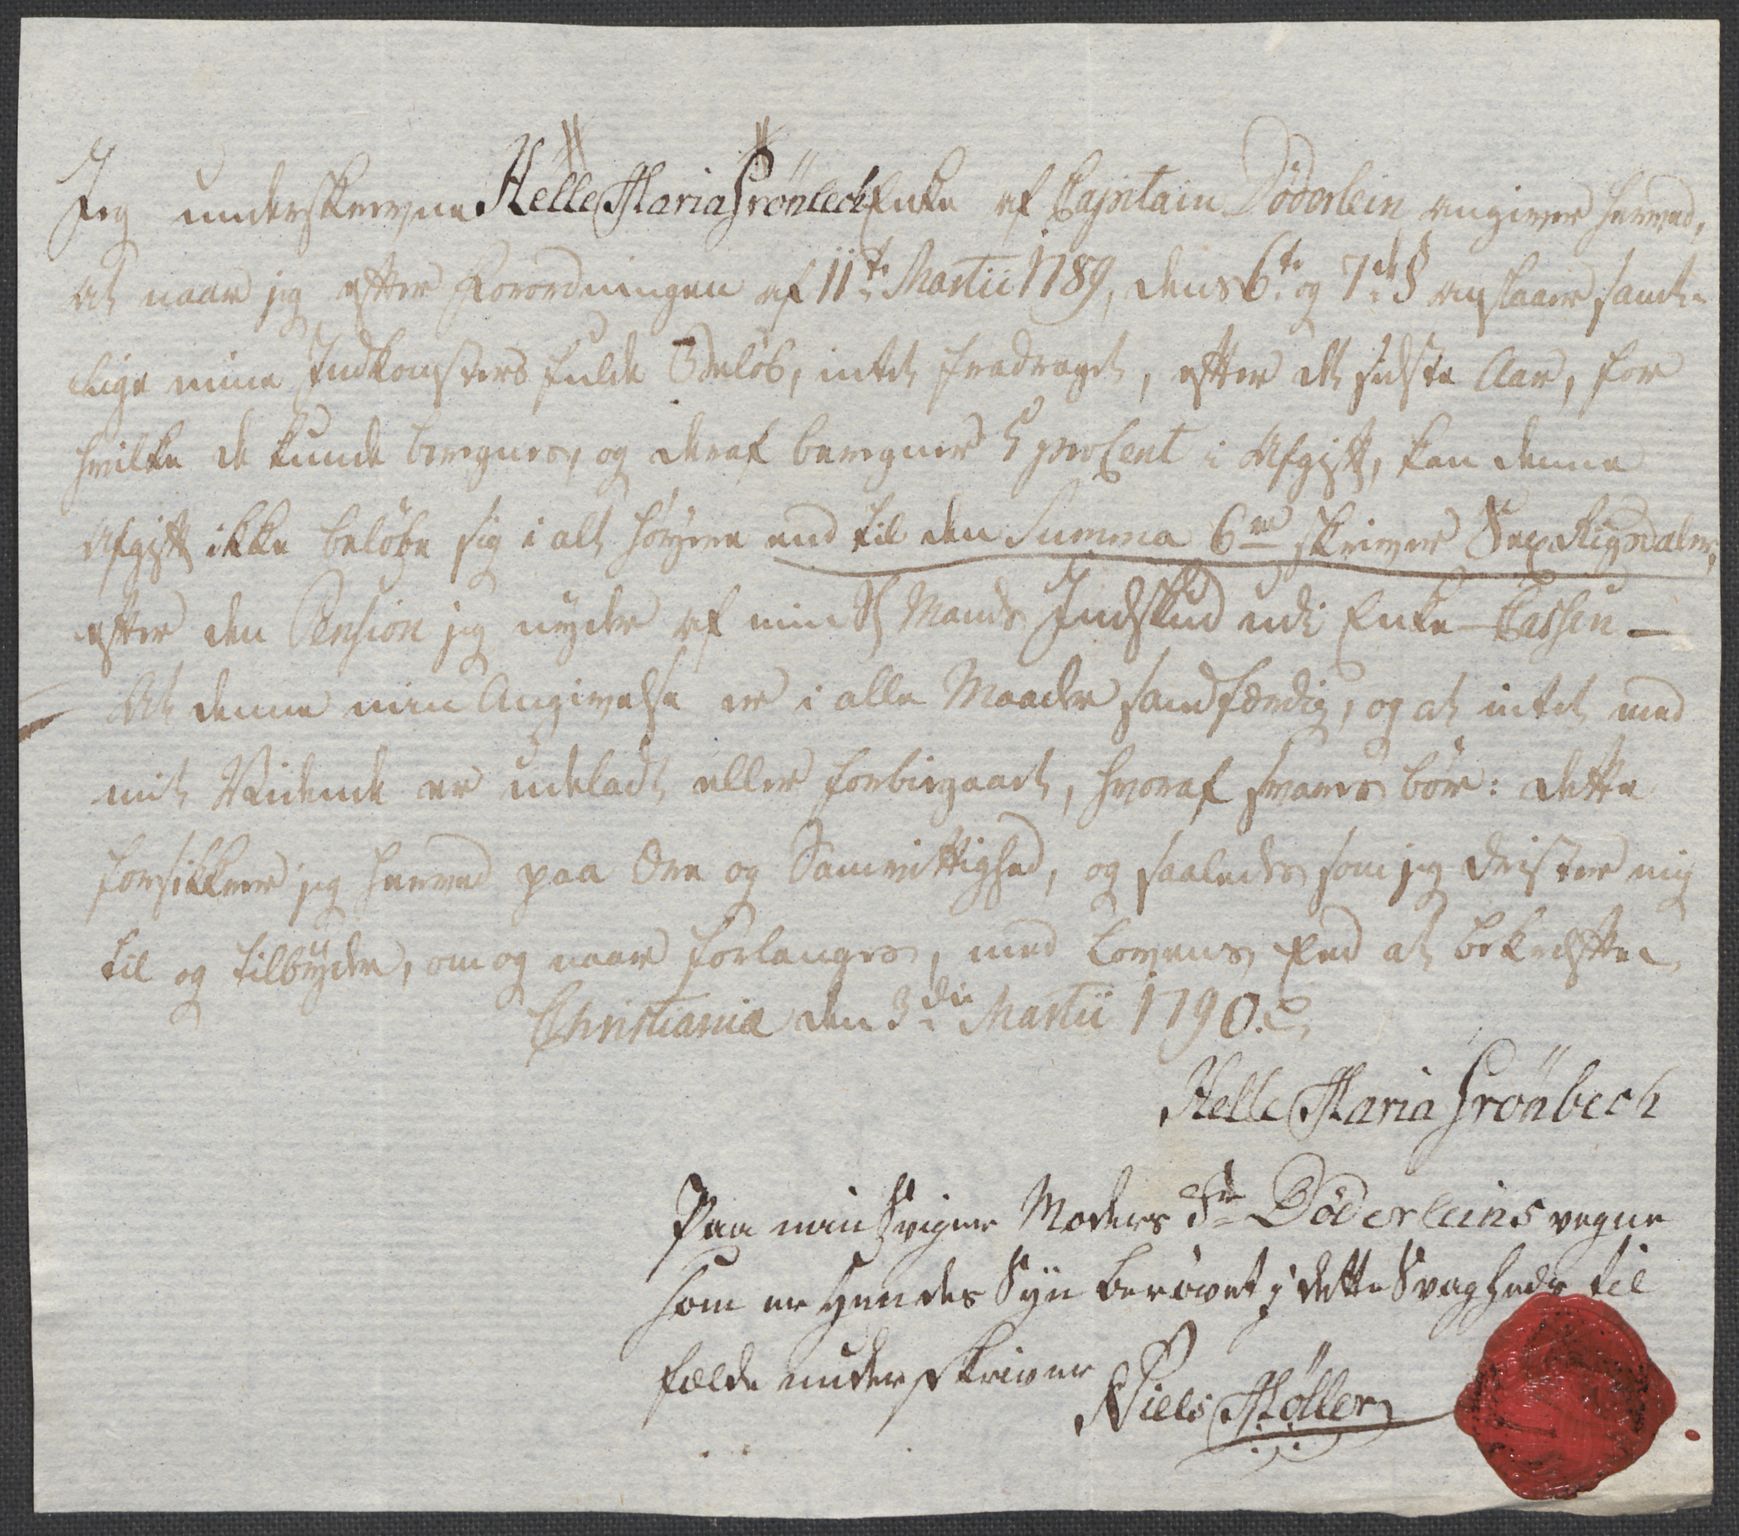 Jeg underskrevne Helle Maria Grönbech Enke af Capitain Döderlein angiver herved,
at naar jeg efter Forordningen af 11te Martii 1789, dens 6te og 7de § anslaaer samt-
lige mine Indkomsters fulde Beløb, intet fradraget, efter det sidste Aar, for
hvilke de kunde beregnes, og deraf beregner 5 proCent i Afgift, kan denne
Afgift ikke beløbe sig i alt høyere end til den Summa 6 rd skriver Sex Rigsdaler,
efter den Pension jeg nyder af min Sl Mands Indskud udi Enke-Cassen —
At denne min Angivelse er i alle Maader sandfærdig, og at intet med
mit Vidende er udeladt eller forbigaaet, hvoraf svares bør: dette
forsikkrer jeg herved paa Ære og Samvittighed, og saaledes som jeg drister mig
til og tilbyder, om og naar forlanges, med Lovens Eed at bekræfte.
Christiania den 3die Martii 1790.
Helle Maria Grönbech
Paa min Sviger Moders Fr Döderleins vegne
som er hendes Syn berövet i dette Svagheds til
fælde underskriver
Niels Möller